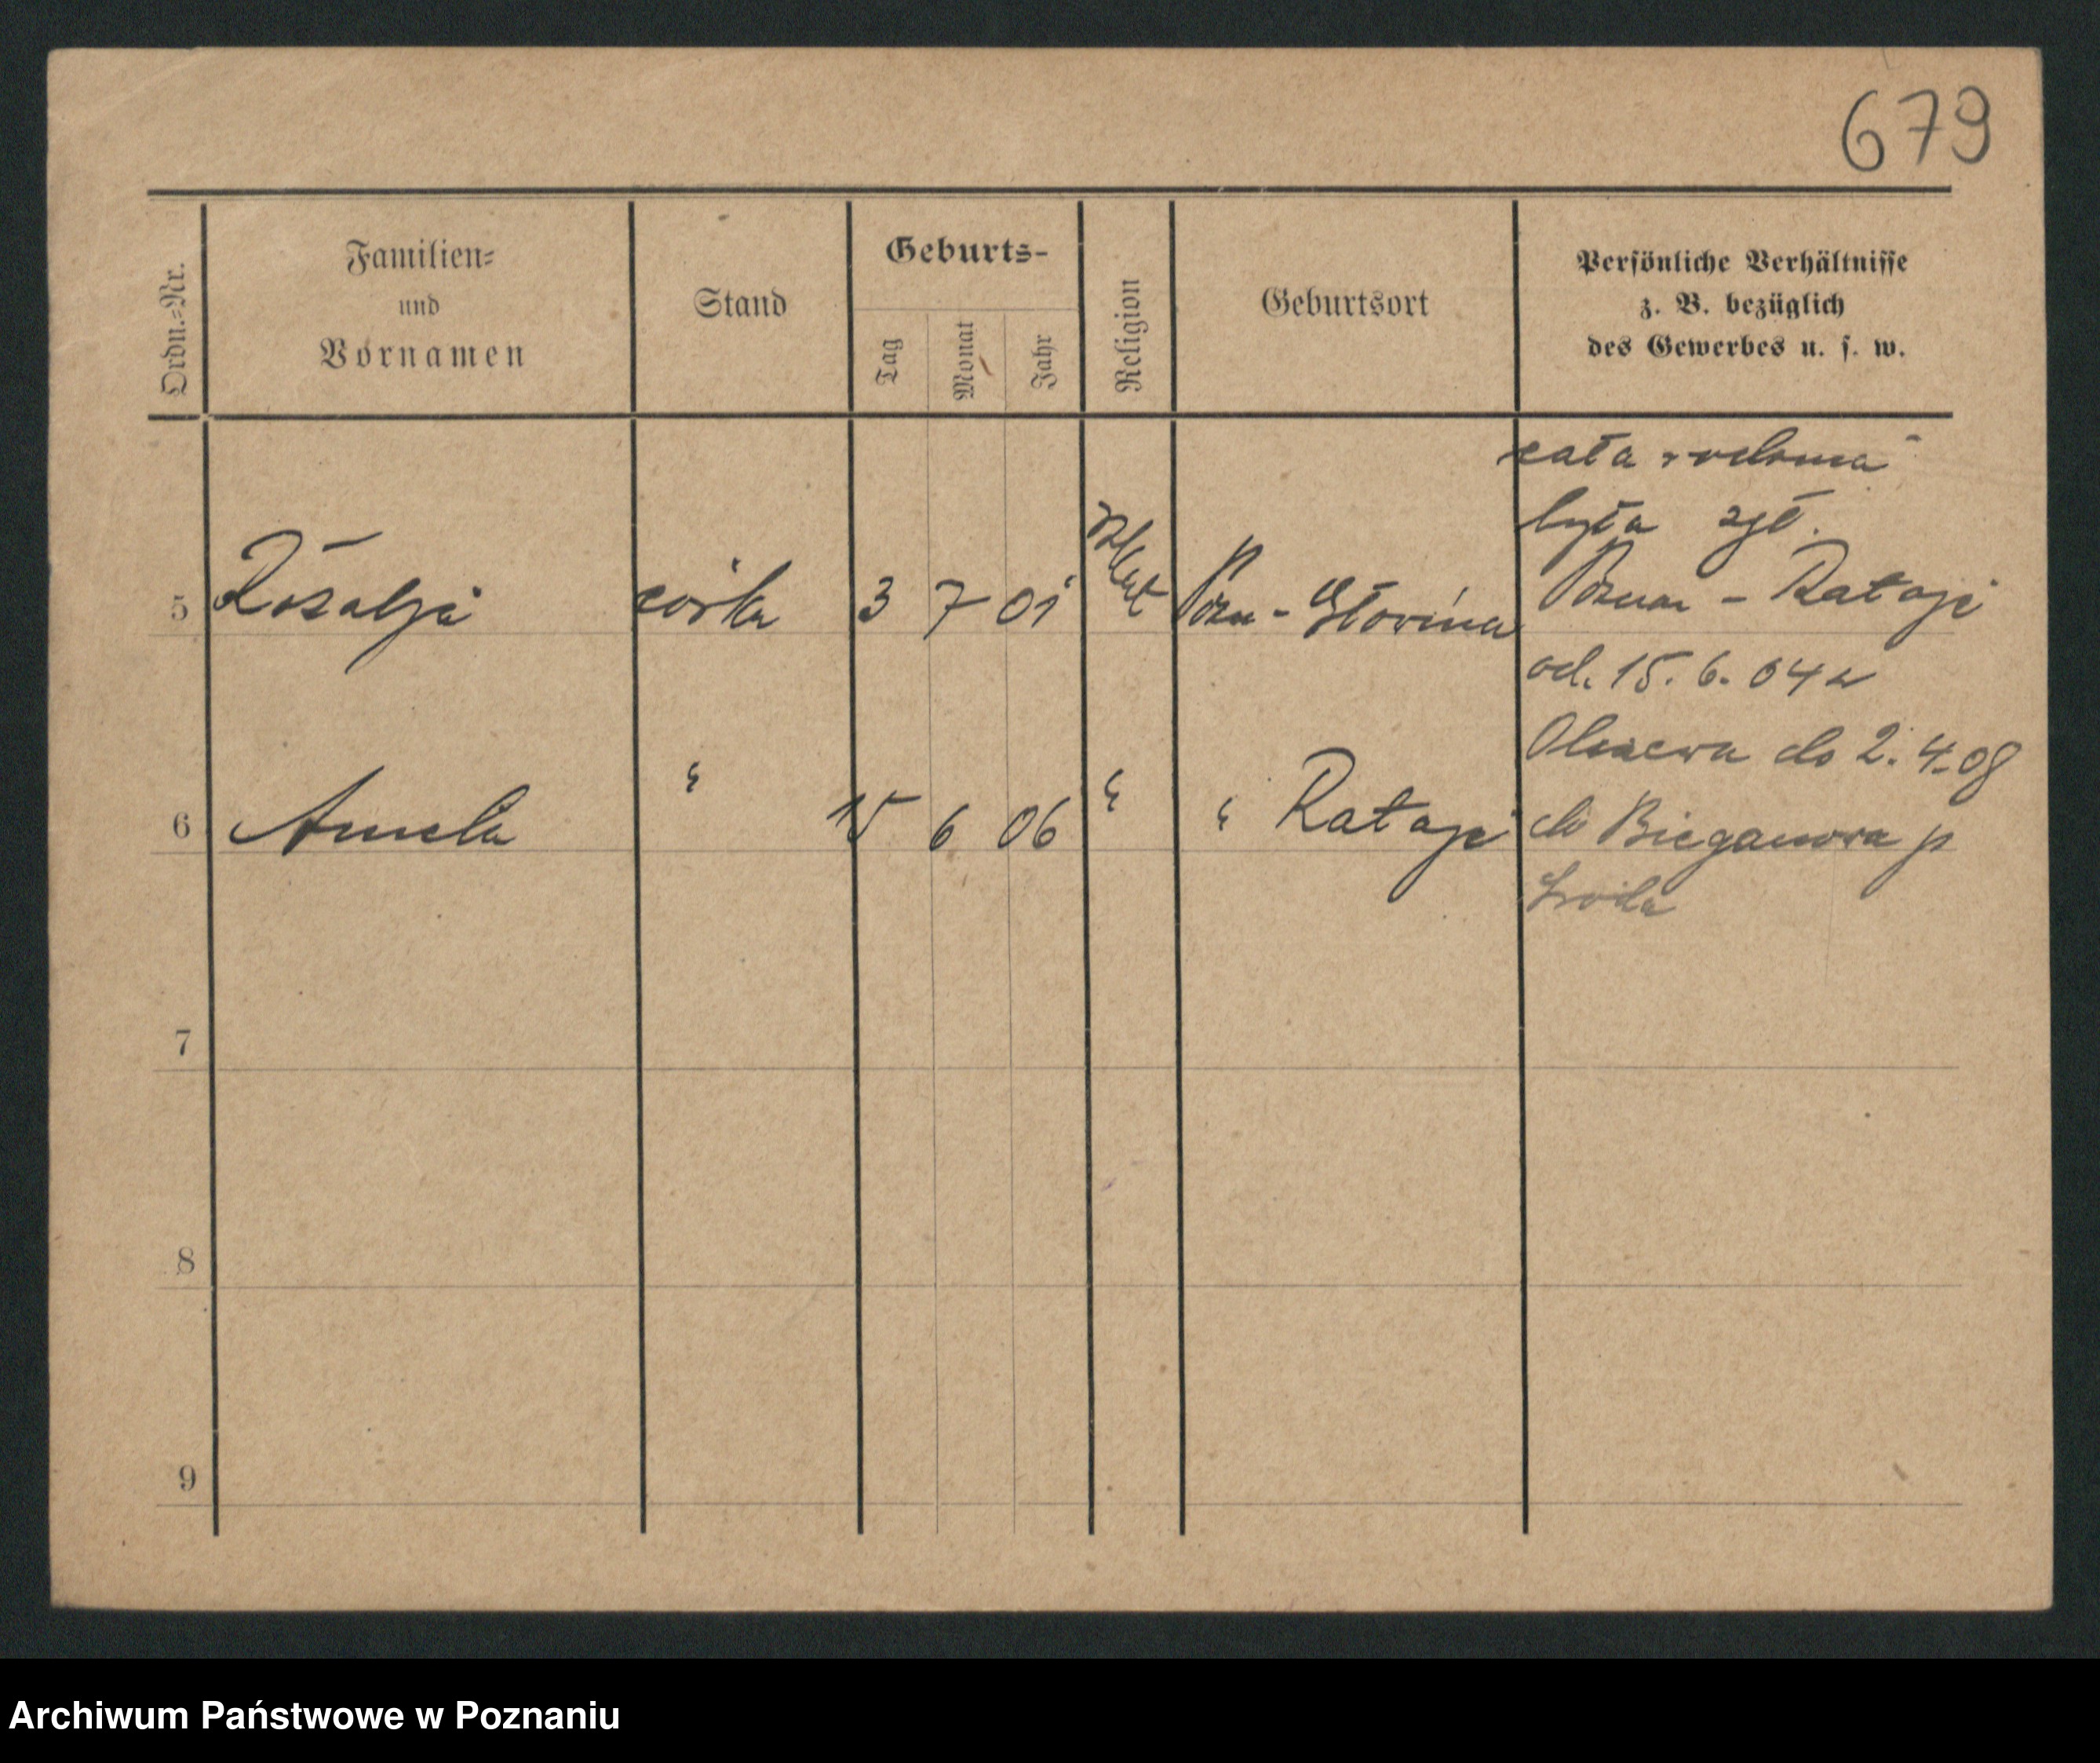 679
Ordn.=Nr.
Familien=
und
Vornamen
Stand
Geburts-
Tag
Monat
Jahr
Religion
Geburtsort
Persönliche Verhältnisse
z. B. bezüglich
des Gewerbes u. s. w.
cała rodzina
była zgł.
5 Rozalja córka 3 7 01 Pozn - Główna Poznan - Rataje
od. 15. 6. 04 w
Olszewa do 2. 4. 08
6 Aniela " 15 6 06 " " Rataje do Bieganowa p
Środa
7
8
9
Archiwum Państwowe w Poznaniu